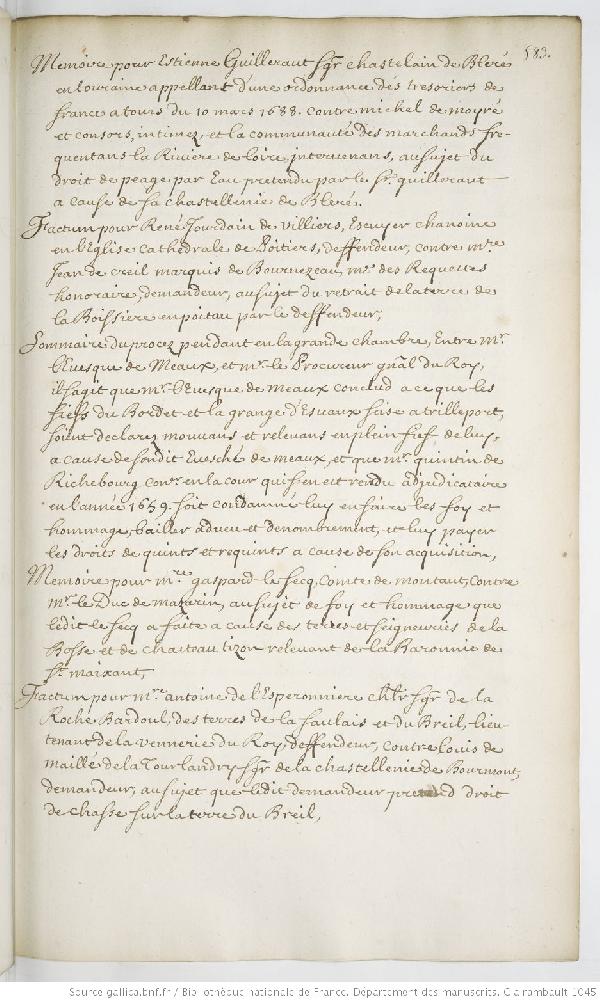 583.
Memoire pour Estienne Guilleraut sgr chastelain de Bleré
en touraine appellant d'une ordonnance des tresoriers de
france a tours du 10 mars 1688. contre michel de moyré
et consors, intimez, et la communauté des marchands fre-
quentans la Riviere de loire, intervenans, au sujet du
droit de peage par Eau pretendu par le sr. guilleraut
a cause de sa chastellenie de Bleré.
Factum pour René Jourdain de Villiers, Escuyer chanoine
en l'Eglise Cathedrale de Poitiers, deffendeur, contre mre
Jean de Creil marquis de Bournezeau, me. des Requestes
honoraire, demandeur, au sujet du retrait de la terre de
la Boissiere en poitou par le deffendeur,
Sommaire du procez pendant en la grande chambre, Entre mr.
l'Evesque de Meaux, et mr. le Procureur gnal du Roy,
il s'agit que mr. l'Evesque de meaux conclud a ce que les
fiefs du Bordet et la grange d'Esvaux scise a trilleport,
soient declarez mouvans et relevans en plein fief de luy,
a cause de sondit Evesché de meaux, et que mr. quintin de
Richebourg conr. en la cour qui s'en est rendu adjudicataire
en l'année 1659. soit condamné luy en faire les foy et
hommage, bailler adveu et denombrement, et luy payer
les droits de quints et requints a cause de son acquisition,
Memoire pour mre gaspard le secq, Comte de montaut, Contre
mr. le Duc de mazarin, au sujet de foy et hommage que
ledit le secq a faite a cause des terres et seigneuries de la
Bosse et de chasteau tizon relevant de la Baronnie de
St. maixant,
Factum pour mre antoine de l'Esperonniere chlr sgr de la
Roche Bardoul, des terres de la saulais et du Breil, lieu-
tenant de la vennerie du Roy, deffendeur, contre louis de
maillé de la Tour landry sgr de la chastellenie de Bourmont,
demandeur, au sujet que ledit demandeur pretend droit
de chasse sur la terre du Breil,
Source gallica.bnf.fr / Bibliothèque nationale de France. Département des manuscrits. Clairambault 1045